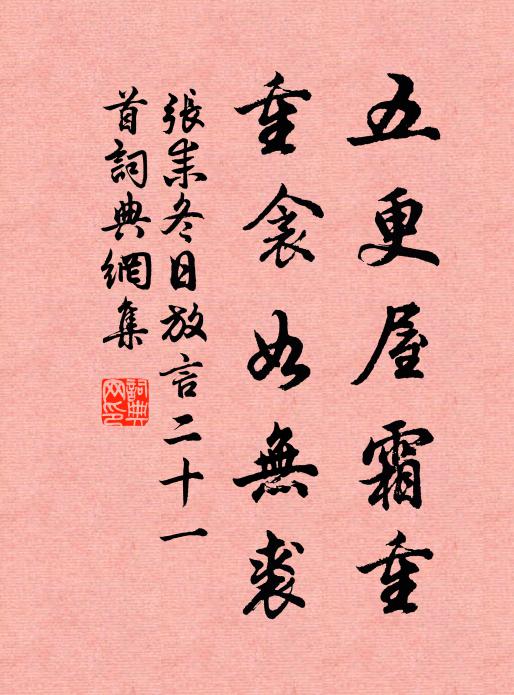 五更屋霜重
重衾如無裘
張耒冬日放言二十一
首詞典網集
詞典網印